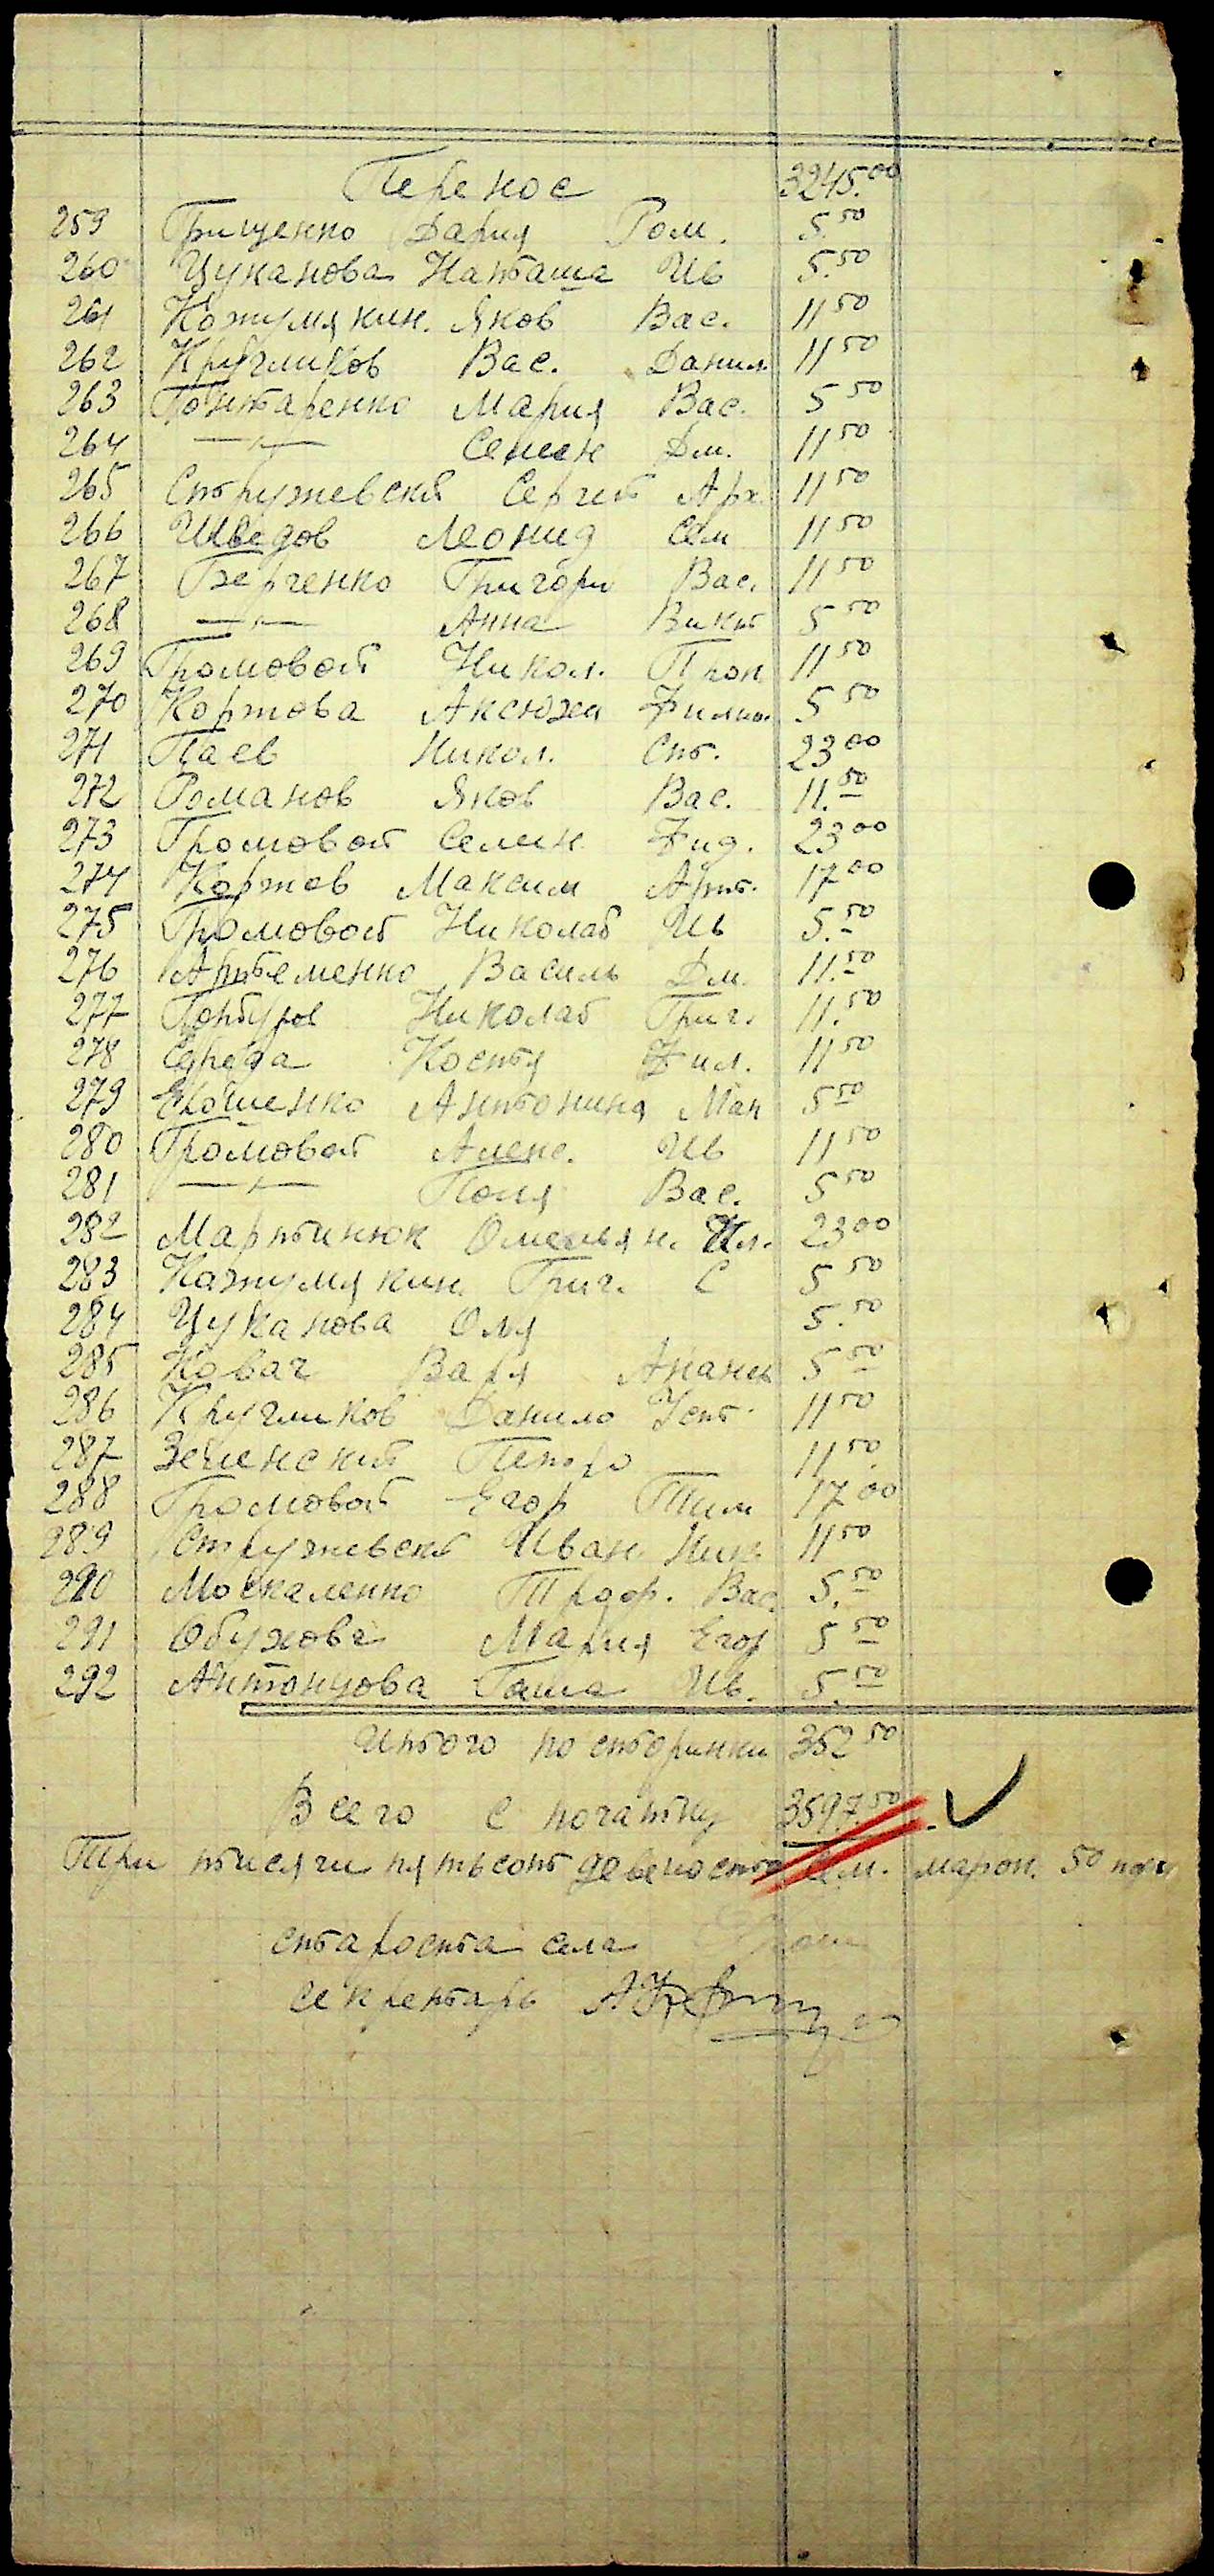 Перенос 3245.00
259 Грищенко Дария Ром. 5.50
260 Цуканова Наташа Ив 5.50
261 Кожумякин. Яков Вас. 11 50
262 Кругликов Вас. Данил. 11 50
263 Гонтаренко Мария Вас. 5 50
264 —〃— Семен Дм. 11 50
265 Стружевский Сергей Арх. 11 50
266 Шведов Леонид Сем 11 50
267 Берченко Григори Вас. 11 50
268 —〃— Анна Викт 5 50
269 Громовой Никол. Прок 11 50
270 Коржова Аксюха 5 50
271 Паев Никол. Ст. 23 00
272 Романов Яков Вас. 11.50
273 Громовой Семен Фид. 23 00
274 Коржов Максим Арт. 17 00
275 Громовой Николай Ив 5.50
276 Артеменко Василь Дм. 11.50
277 Николай Григ. 11.50
278 Середа Костя Фил. 11 50
279 Антонина Мак 5 50
280 Громовой Алекс. Ив 11 50
281 —〃— Поля Вас. 5 50
282 Мартинюк Омельян. Ил. 23 00
283 Кажумякин. Григ. С 5 50
284 Цуканова Оля 5.50
285 Ковач Варя Анань 5 50
286 Кругликов Данило Уст. 11 50
287 Зеленский Петро 11 50
288 Громовой Егор Тим 17 00
289 Стружевский Иван Ник. 11 50
290 Москаленко Вас. 5.50
291 Обухова Мария Егор 5 50
292 Антонцова Гаша Ив. 5.50
Итого по сторинки 352 50
Всего с початку 3597.50
Три тисячи пятьсот девеносто сем. марок. 50
староста села
секретарь